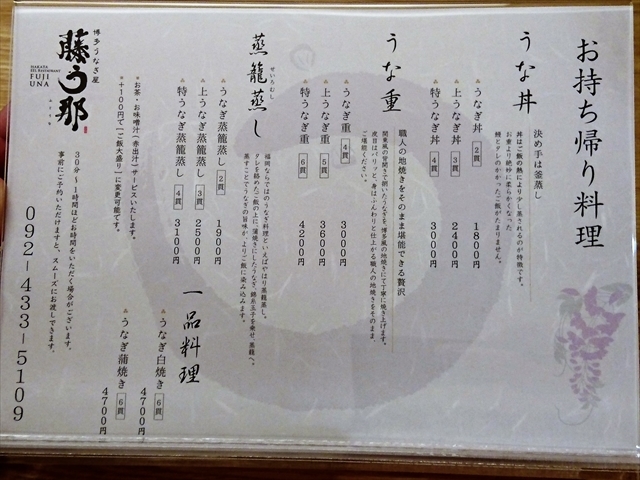 お持ち帰り料理
うな丼
決め手は釜蒸し
丼はご飯の熱により少し蒸されるのが特徴です。
お重より絶妙に柔らかくなった
鰻とタレのかかったご飯がたまりません。
うなぎ丼 2貫 1800円
上うなぎ丼 3貫 2400円
特うなぎ丼 4貫 3000円
うな重
職人の地焼きをそのまま堪能できる贅沢
関東風の背開きで捌いたうなぎを、博多風の地焼きにて丁寧に焼き上げます。
皮目はパリッと、身はふんわりと仕上がる職人の地焼きをそのまま、
ご堪能ください。
うなぎ重 4貫 3000円
上うなぎ重 5貫 3600円
特うなぎ重 6貫 4200円
蒸籠蒸し
せいろむし
福岡ならではのうなぎ料理といえばやはり蒸籠蒸し。
タレを絡めたご飯の上に、蒲焼きにしたうなぎ、錦糸玉子を乗せ、蒸籠へ。
蒸すことでうなぎの旨味が、よりご飯に染み込みます。
うなぎ蒸籠蒸し 2貫 1900円
上うなぎ蒸籠蒸し 3貫 2500円
特うなぎ蒸籠蒸し 4貫 3100円
一品料理
うなぎ白焼き 6貫 4700円
うなぎ蒲焼き 6貫 4700円
*お茶・お味噌汁(赤出汁)サービスいたします。
*+100円で「ご飯大盛り」に変更可能です。
博多うなぎ屋
藤う那
HAKATA
EEL RESTAURANT
FUJI
UNA
ふじうな
30分〜1時間ほどお時間をいただく場合がございます。
事前にご予約いただけますと、スムーズにお渡しできます。
092-433-5109